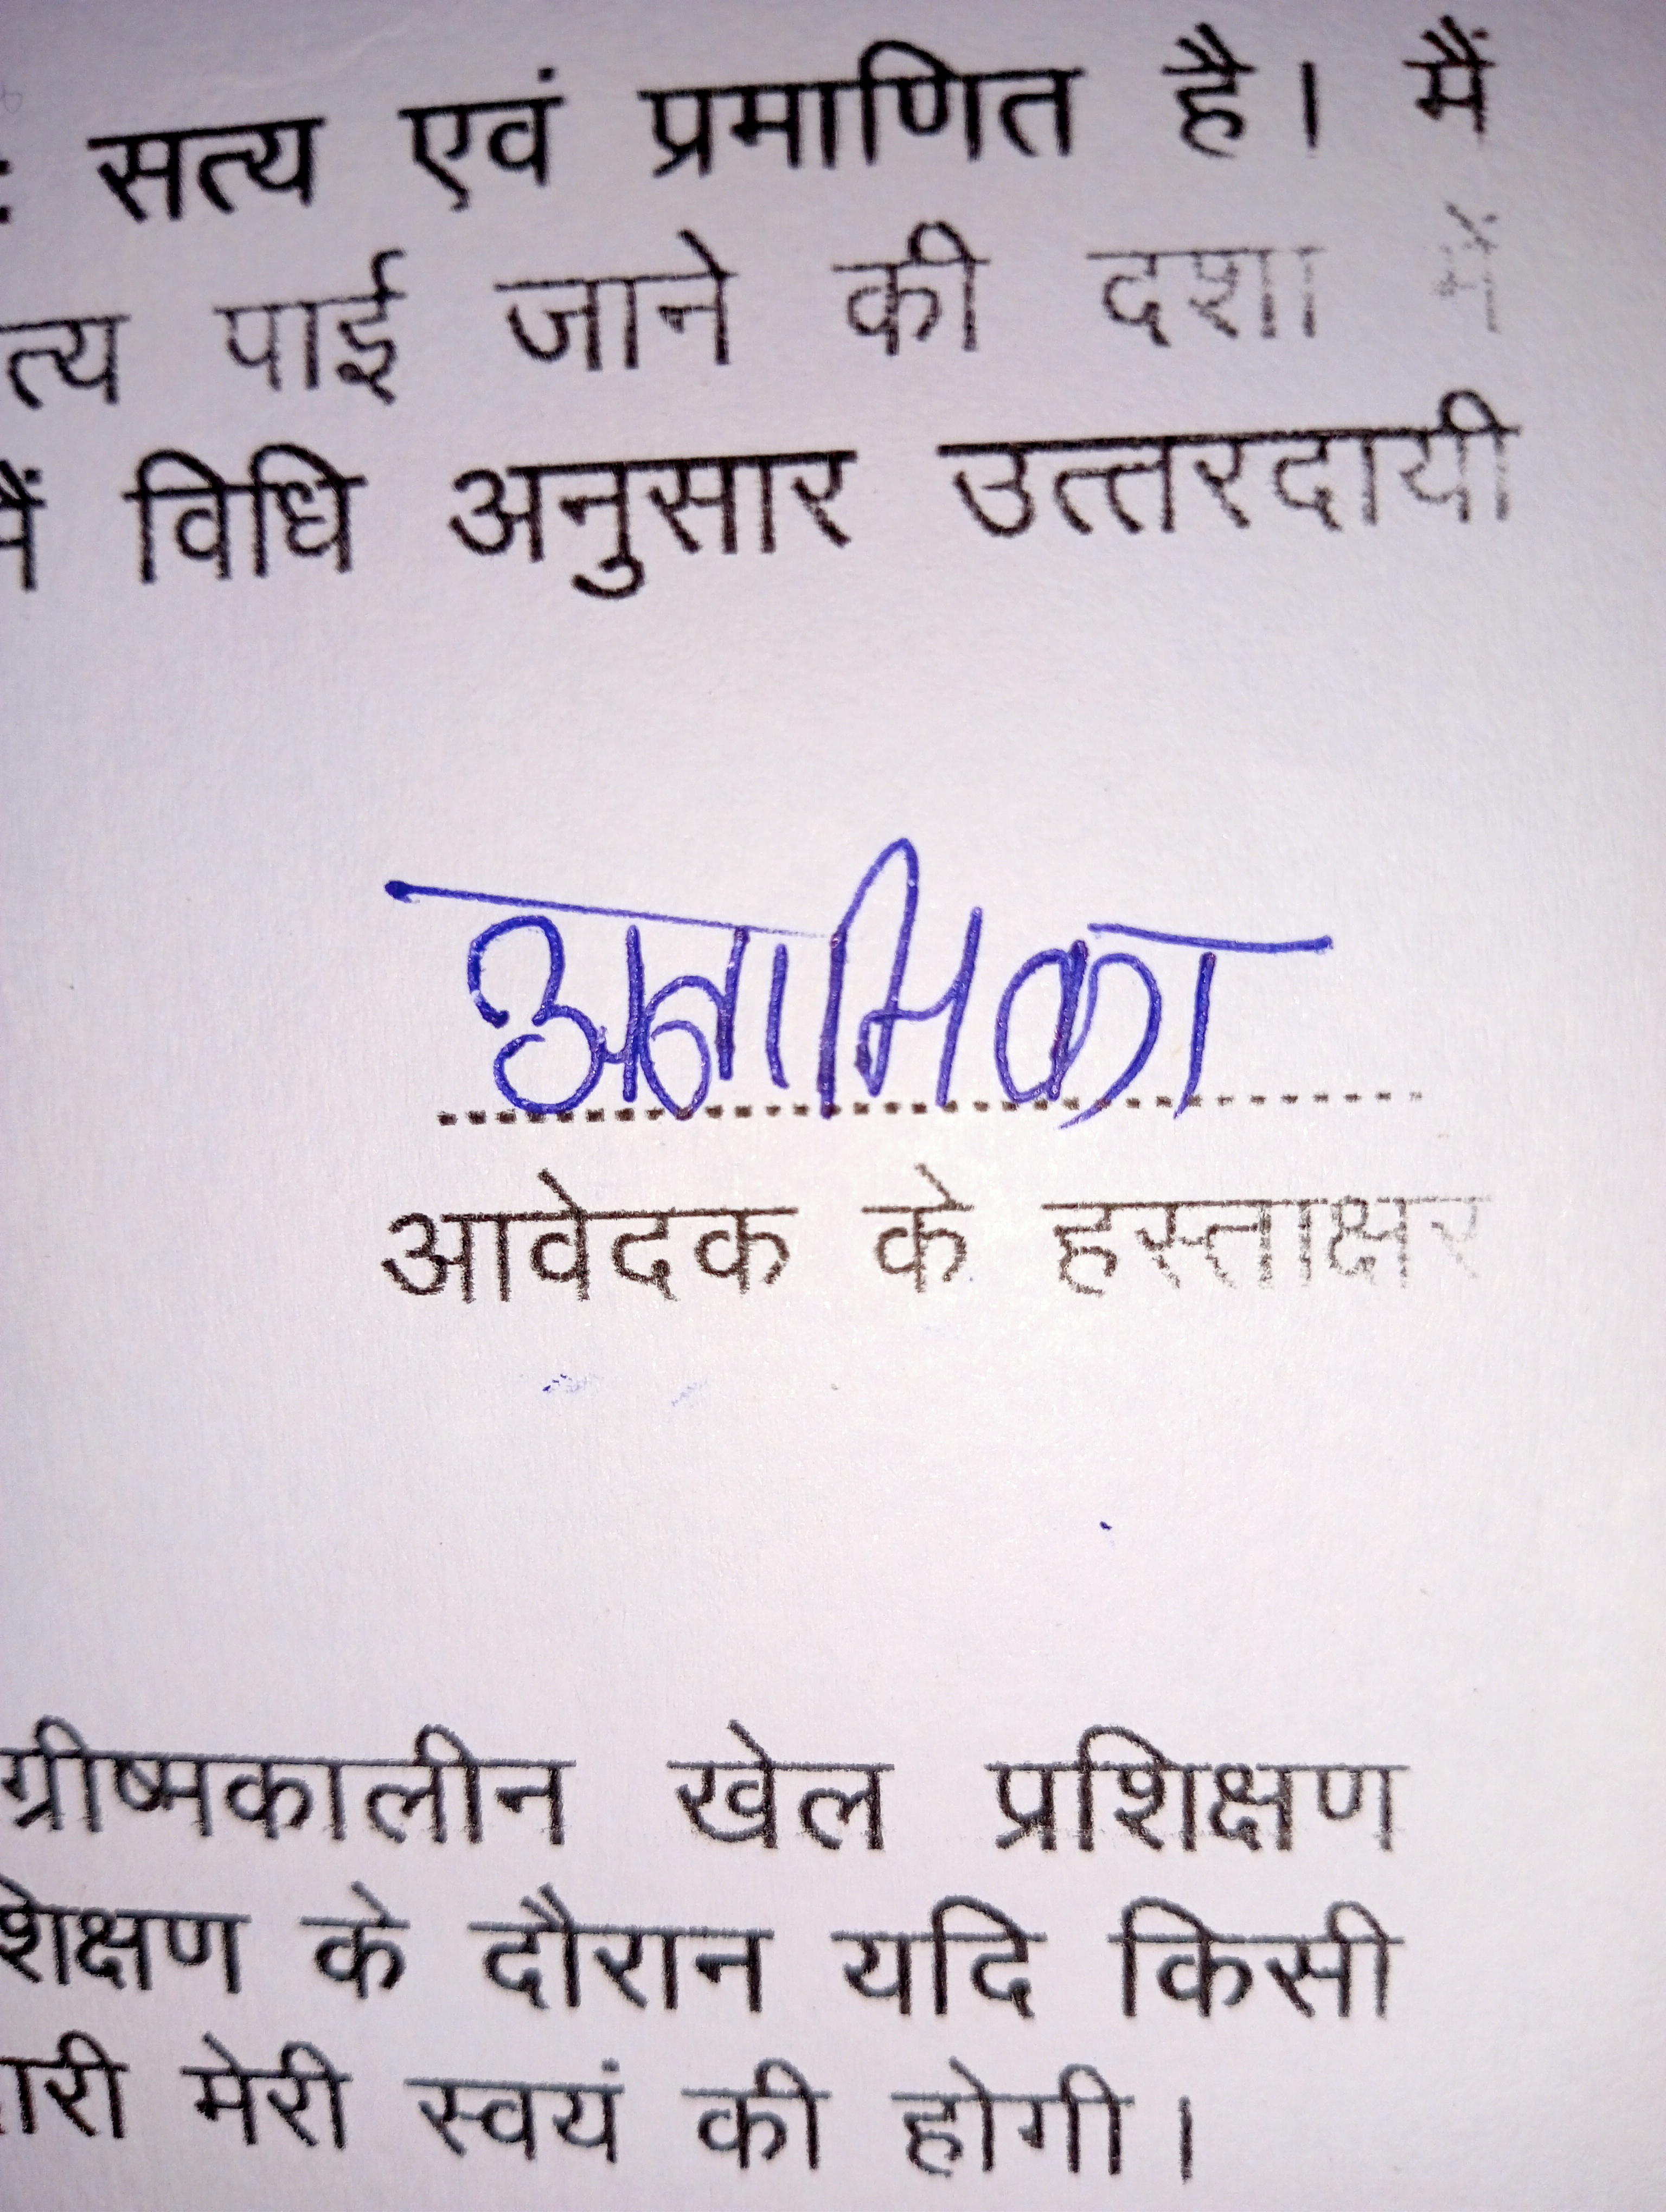 : सत्य एवं प्रमाणित है। मैं
त्य पाई जाने की दशा में
में विधि अनुसार उत्तरदायी
अनामिका
आवेदक के हस्ताक्षर
ग्रीष्मकालीन खेल प्रशिक्षण
शिक्षण के दौरान यदि किसी
ारी मेरी स्वयं की होगी।